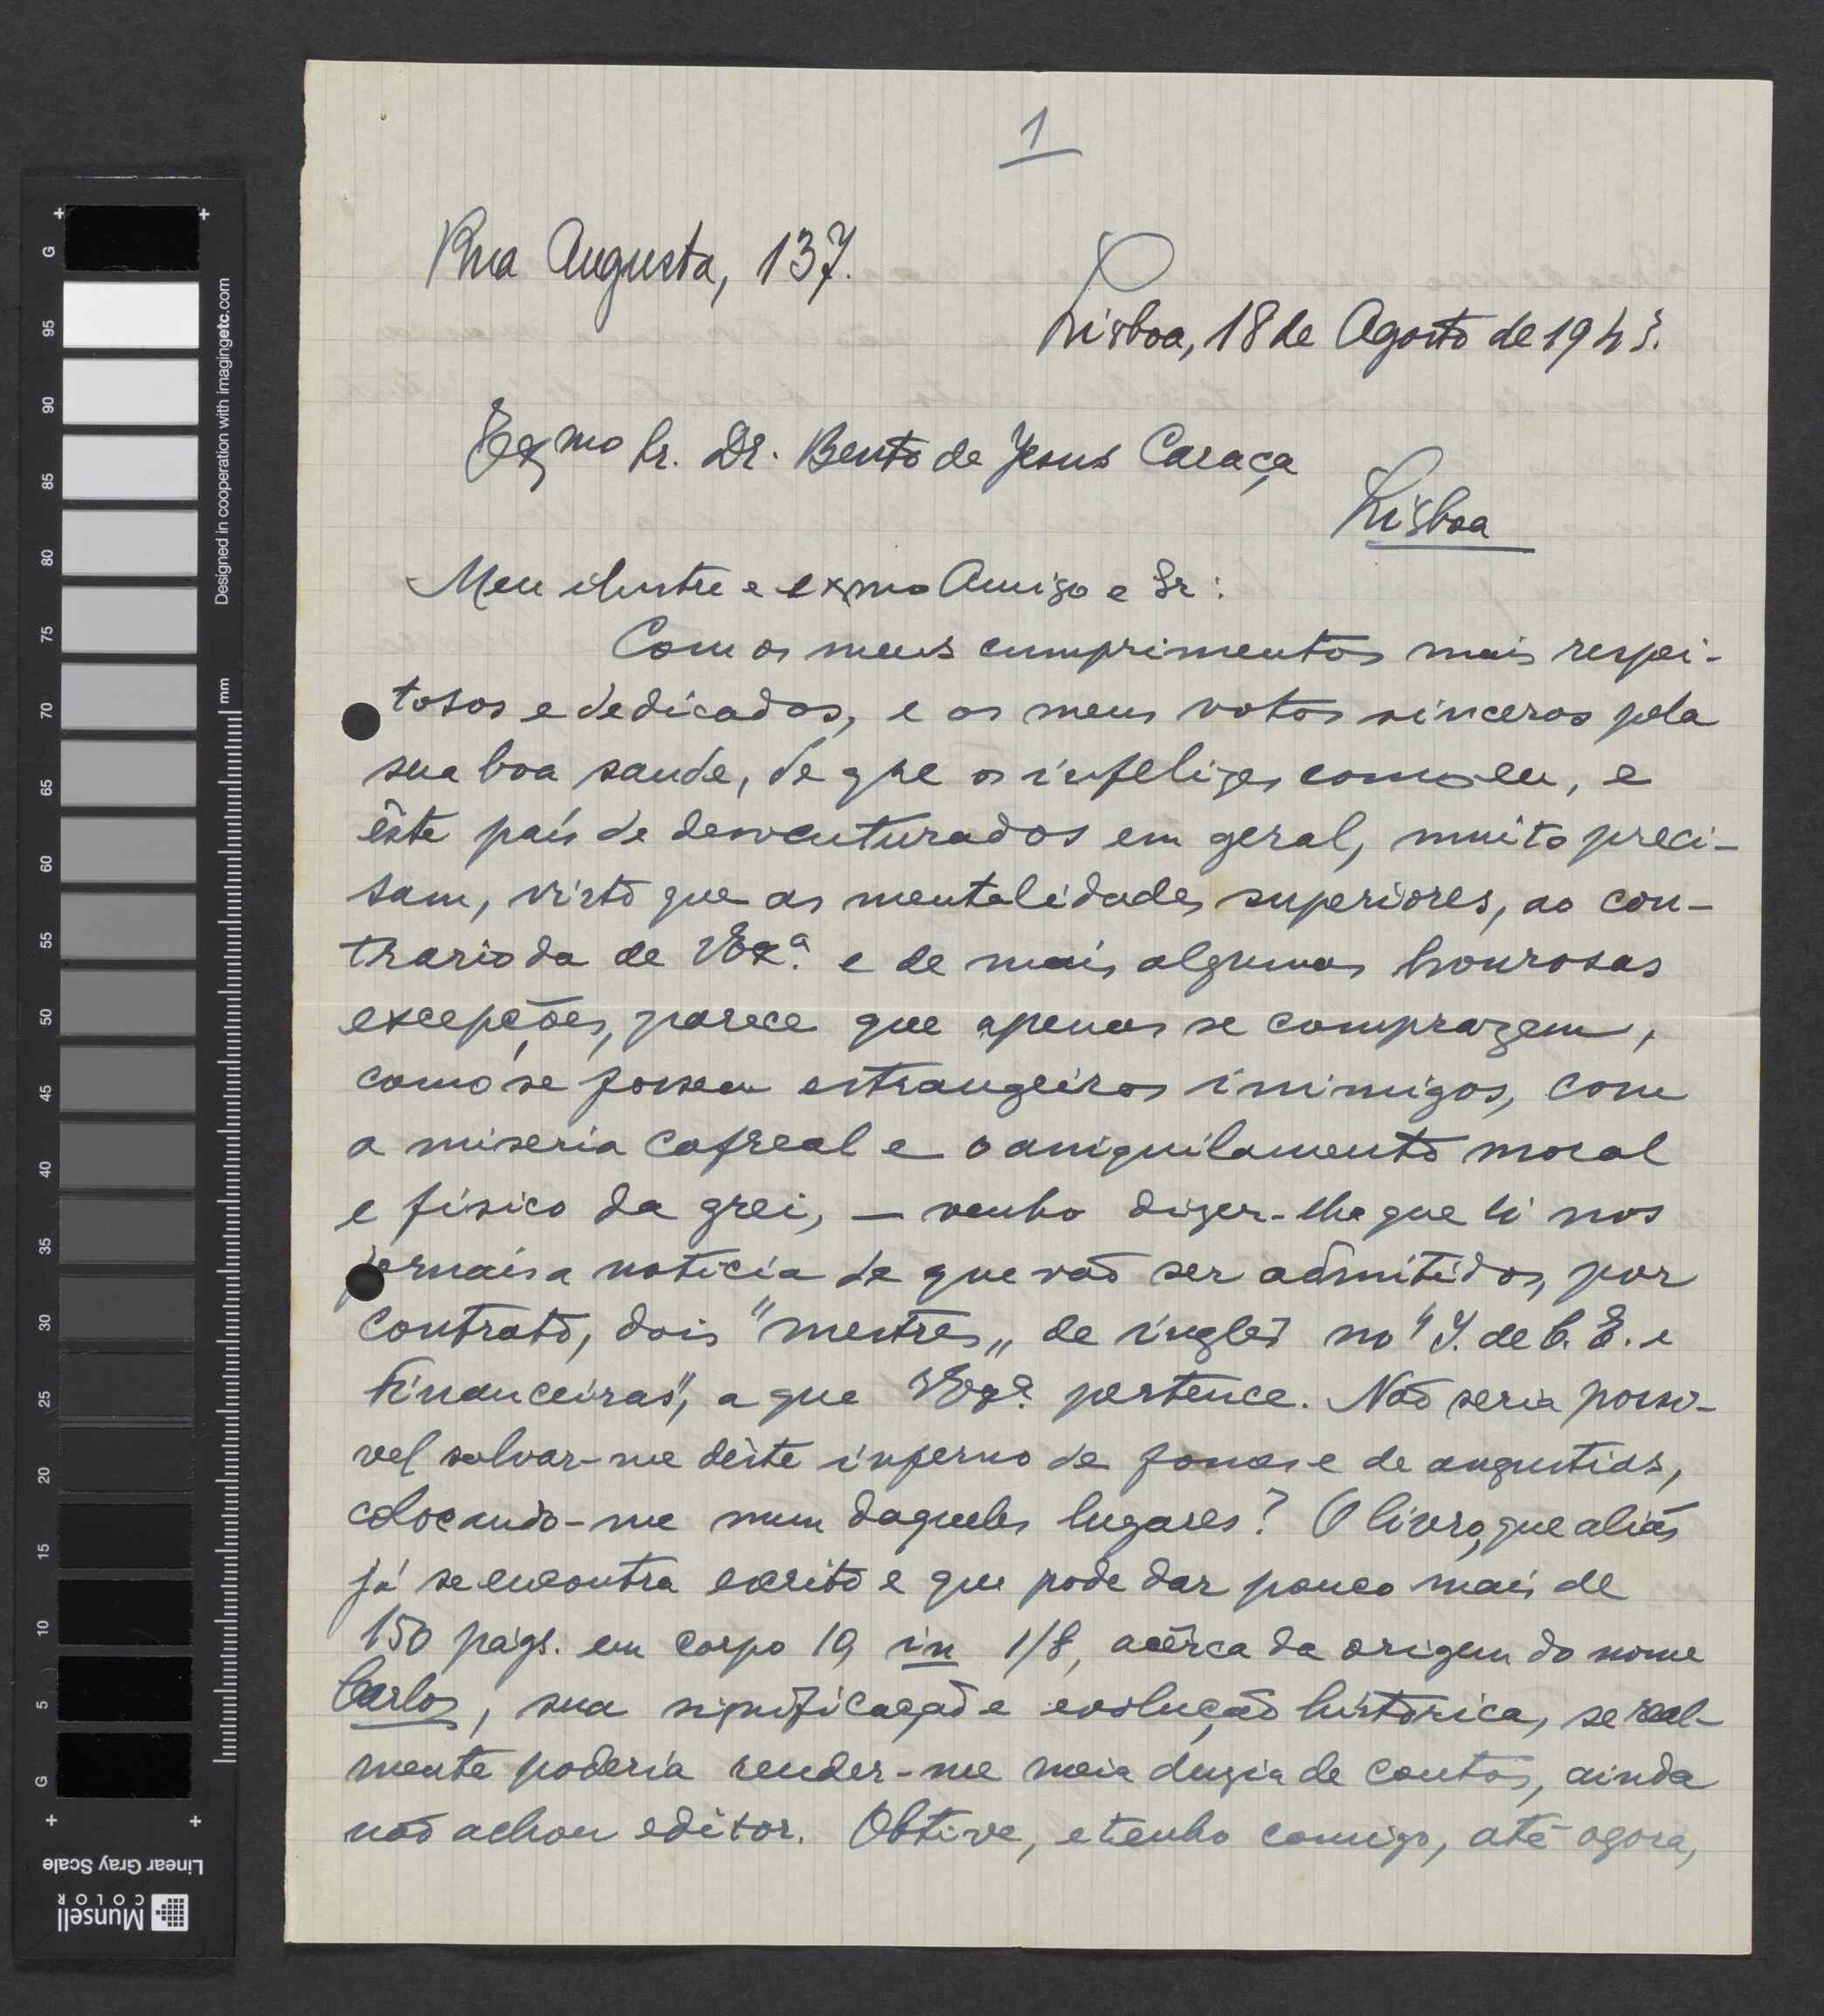 1
Rua Augusta, 137.
Lisboa, 18 de Agosto de 1943.
Exmo Sr. Dr. Bento de Jesus Caraça
Lisboa
Meu ilustre e exmo Amigo e Sr:
Com os meus cumprimentos mais respei-
tosos e dedicados, e os meus votos sinceros pela
sua boa saude, de que os infelizes como eu, e
êste país de desventurados em geral, muito preci-
sam, visto que as mentalidades superiores, ao con-
trario da de VExª. e de mais algumas honrosas
excepções, parece que apenas se comprazem,
como se fossem estrangeiros inimigos, com
a miseria cafreal e o aniquilamento moral
e físico da grei, — venho dizer-lhe que li nos
jornais a noticia de que vão ser admitidos, por
contrato, dois "mestres" de inglês no "I. de C. E. e
Financeiras", a que VExª. pertence. Não seria possi-
vel salvar-me dêste inferno de fomes e de angustias,
colocando-me num daqueles lugares? O livro, que aliás
já se encontra escrito e que pode dar pouco mais de
150 págs. em corpo 10, in 1/8, acêrca da origem do nome
Carlos, sua significação e evolução histórica, se real-
mente poderia render-me meia duzia de contos, ainda
não achou editor. Obtive, e tenho comigo, até agora,
G 95 90 85 80 75 70 65 60 55 50 45 40 35 30 25 20 15 10 5 G
mm
Designed in cooperation with imagingetc.com
Linear Gray Scale
Munsell
COLOR